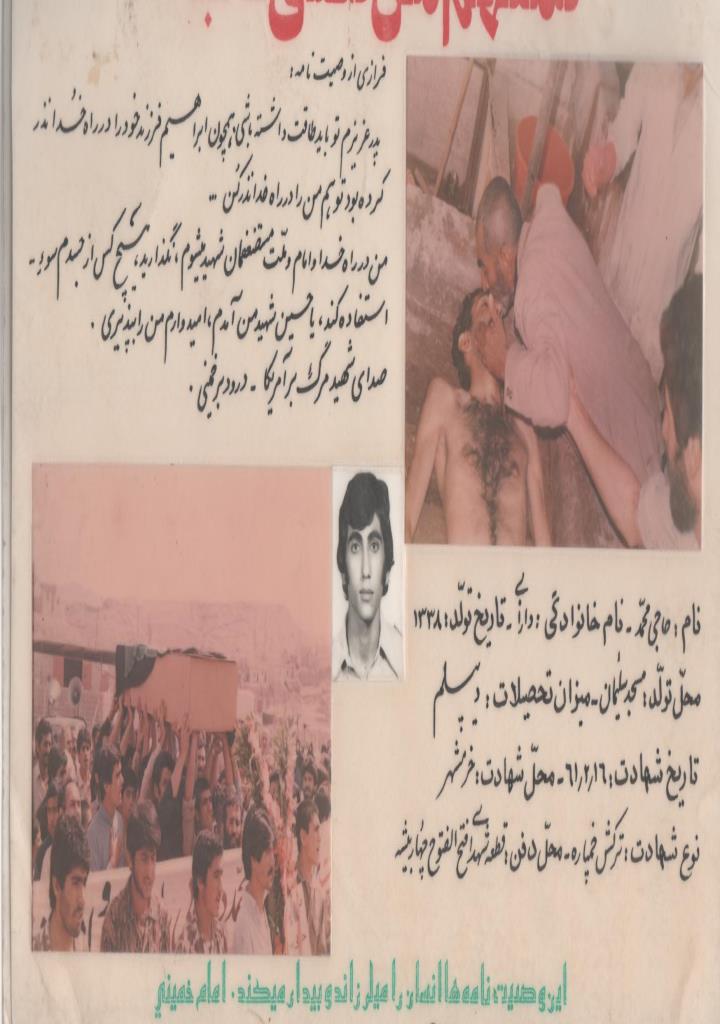 فرازی از وصیت نامه:
پدر عزیزم تو باید طاقت داشته باشی همچون ابراهیم فرزند خود را در راه خدا نذر
کرده بود تو هم من را در راه خدا نذر کن ...
من در راه خدا و امام و ملت مستضعفمان شهید میشوم، نگذارید، هیچ کس از جسدم سوء -
استفاده کند، یا حسین شهید من آمدم، امیدوارم من را بپذیری.
صدای شهید مرگ بر آمریکا - درود بر خمینی.
نام: حاجی محمد - نام خانوادگی: دارابی - تاریخ تولد: ۱۳۳۸
محل تولد: مسجد سلیمان - میزان تحصیلات: دیپلم
تاریخ شهادت: ۶۱٫۲٫۱۶ - محل شهادت: خرمشهر
نوع شهادت: ترکش خمپاره - محل دفن: قطعه شهدای فتح الفتوح چهار بیشه
این وصیت نامه ها انسان را میلرزاند و بیدار میکند. امام خمینی